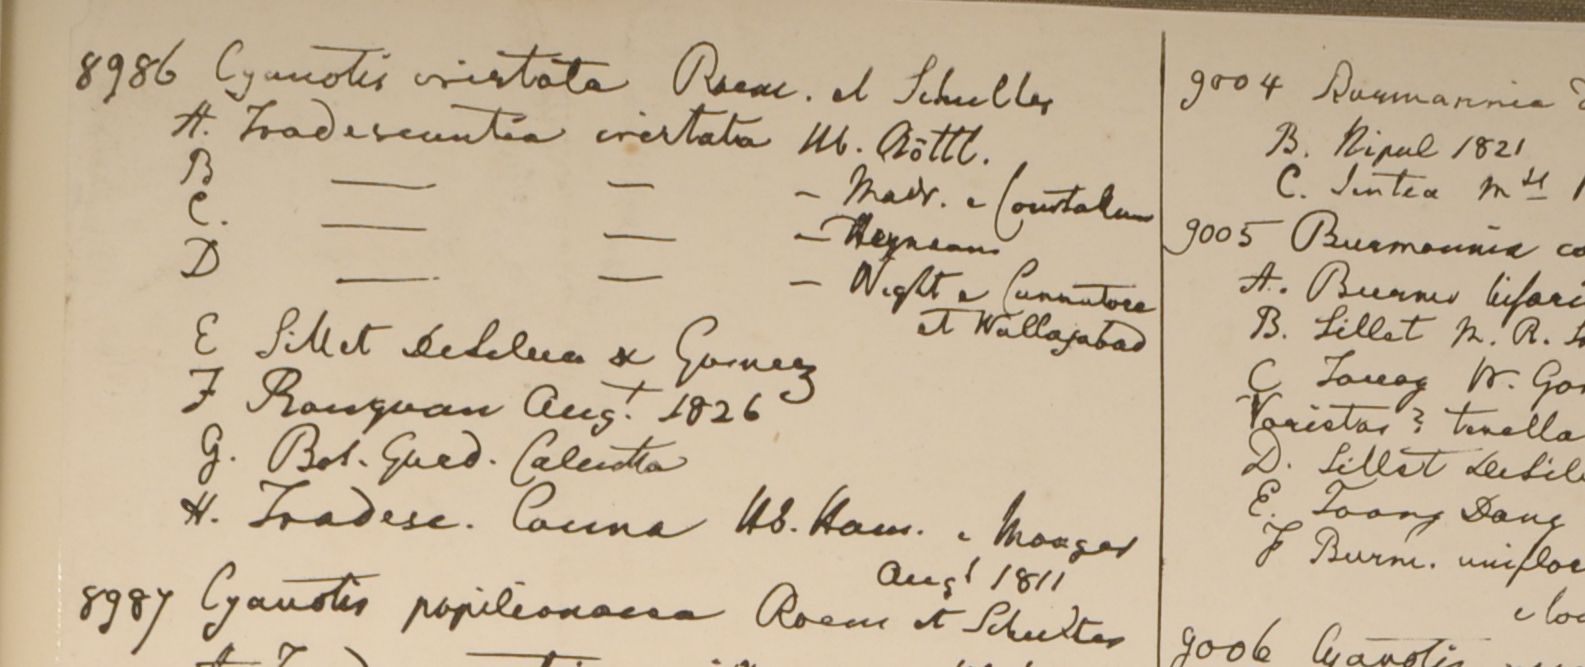 8986 Cyanotis cristata Roem. et Schultes
A. Tradescantia cristata Hb. Röttl.
B — — — Madr. e
C. — — — Heyneana
D — — — Wight e
et Wallajabad
E Sillet DeSilva & Gomez
F Rangoon Augt. 1826
G. Bot. Gard. Calcutta
H. Tradesc. Hb. Ham. e
Augt 1811
8987 Cyanotis papilionacea Roem et Schultes
9004 Burmannia
B. Nipal 1821
C. Mtt
9005 Burmannia co
A. Burm. bifari
B. Sillet
C Tavoy W. Go
Varietas? tenella
D. Sillet DeSil
E. Toong Dong
F Burm. uniflor
e loc
9006 Cyanotis